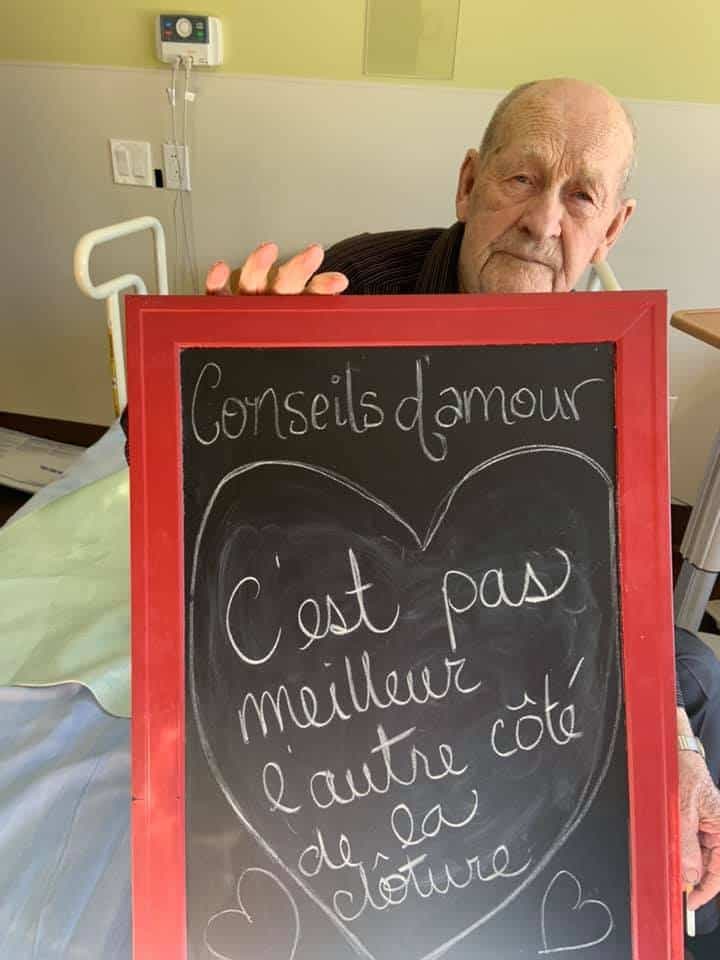 Conseils d'amour
C'est pas
meilleur
l'autre côté
de la
clôture